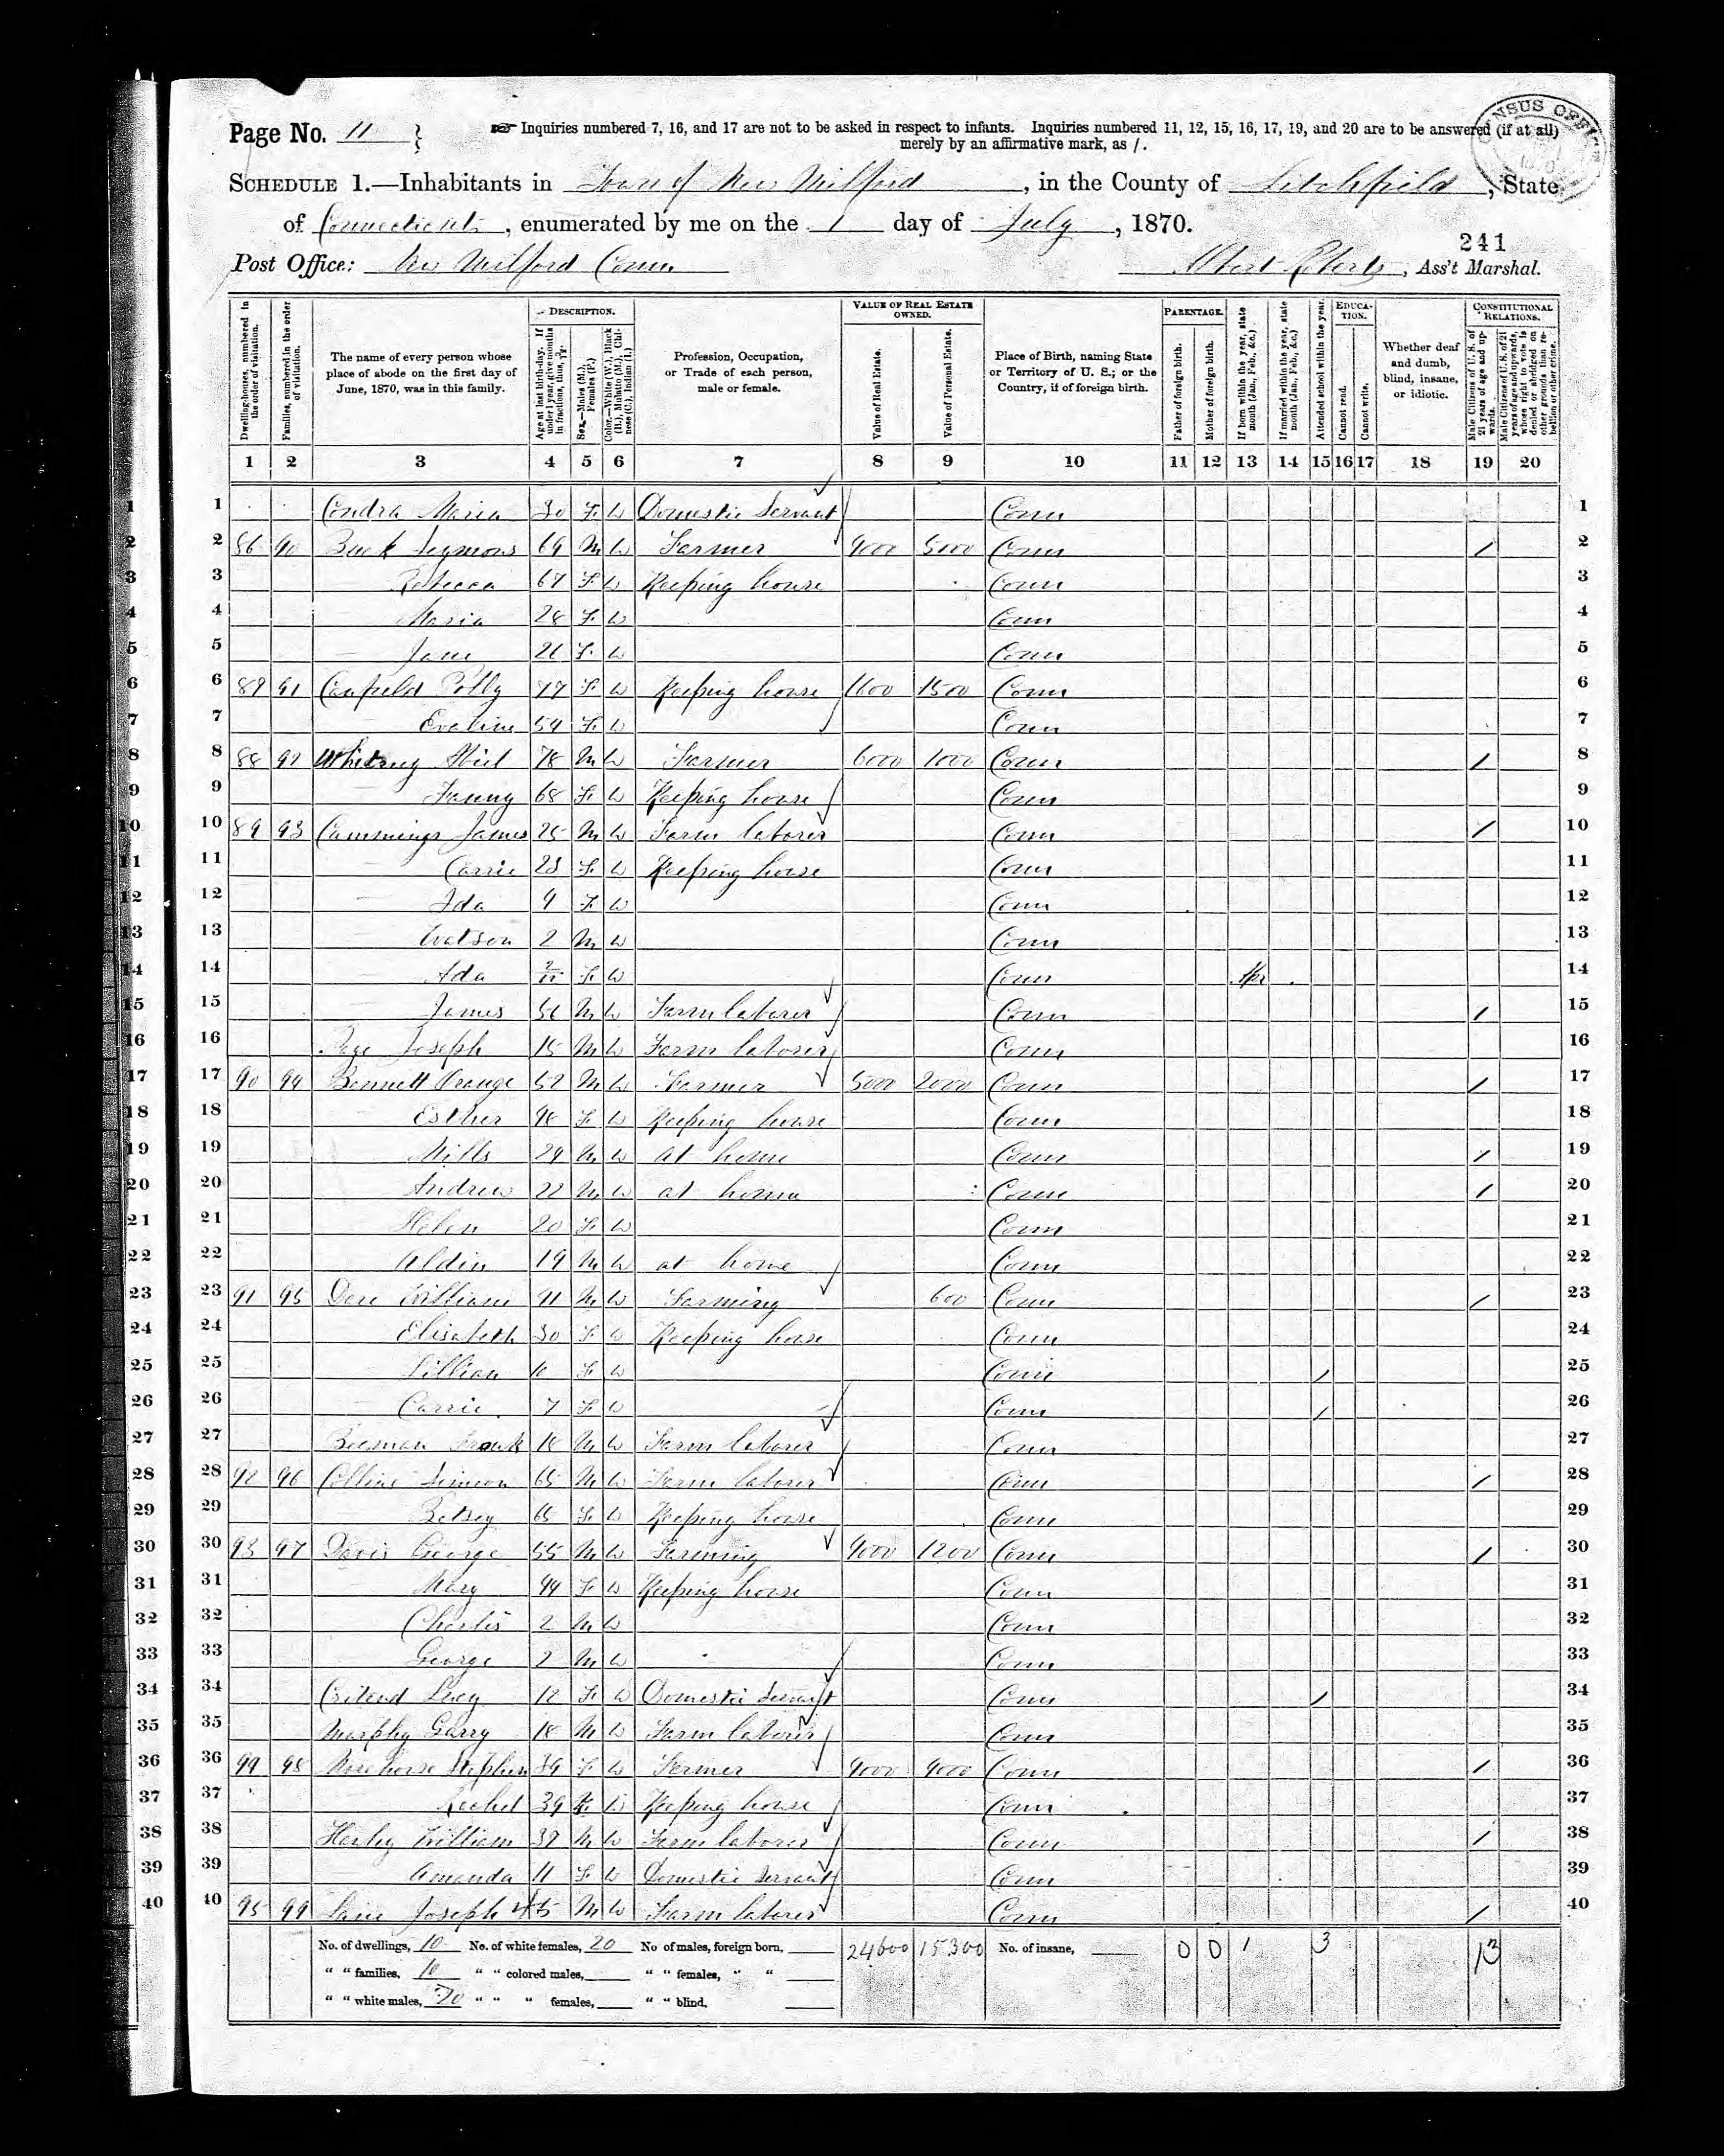 Page No. 11
☞ Inquiries numbered 7, 16, and 17 are not to be asked in respect to infants. Inquiries numbered 11, 12, 15, 16, 17, 19, and 20 are to be answered (if at all)
merely by an affirmative mark, as /.
CENSUS OFFICE
SCHEDULE 1.—Inhabitants in Town of New Milford, in the County of Litchfield, State
of Connecticut, enumerated by me on the 1 day of July, 1870.
241
Post Office: New Milford Conn
Albert Roberts, Ass't Marshal.
Dwelling-houses, numbered in the order of visitation.
Families, numbered in the order of visitation.
The name of every person whose place of abode on the first day of June, 1870, was in this family.
DESCRIPTION.
Age at last birth-day. If under 1 year, give months in fractions, thus, 3/12.
Sex.—Males (M.), Females (F.)
Color.—White (W.), Black (B.), Mulatto (M.), Chinese (C.), Indian (I.)
Profession, Occupation, or Trade of each person, male or female.
VALUE OF REAL ESTATE OWNED.
Value of Real Estate.
Value of Personal Estate.
Place of Birth, naming State or Territory of U. S.; or the Country, if of foreign birth.
PARENTAGE.
Father of foreign birth.
Mother of foreign birth.
If born within the year, state month (Jan., Feb., &c.)
If married within the year, state month (Jan., Feb., &c.)
Attended school within the year.
EDUCATION.
Cannot read.
Cannot write.
Whether deaf and dumb, blind, insane, or idiotic.
CONSTITUTIONAL RELATIONS.
Male Citizens of U. S. of 21 years of age and upwards.
Male Citizens of U. S. of 21 years of age and upwards, whose right to vote is denied or abridged on other grounds than rebellion or other crime.
1 2 3 4 5 6 7 8 9 10 11 12 13 14 15 16 17 18 19 20
1 Condra Maria 30 F W Domestic Servant Conn 1
2 86 90 Buck Seymour 69 M W Farmer 9000 5000 Conn / 2
3 Rebecca 67 F W Keeping house Conn 3
4 Maria 28 F W Conn 4
5 Jane 21 F W Conn 5
6 87 91 Canfield Polly 77 F W Keeping house 1600 1500 Conn 6
7 Eveline 54 F W Conn 7
8 88 92 Whitney Abiel 78 M W Farmer 6000 1000 Conn / 8
9 Fanny 68 F W Keeping house Conn 9
10 89 93 Cummings James 25 M W Farm laborer Conn / 10
11 Carrie 23 F W Keeping house Conn 11
12 Ida 4 F W Conn 12
13 Watson 2 M W Conn 13
14 Ada F W Conn Apr 14
15 James 56 M W Farm laborer Conn / 15
16 Page Joseph 15 M W Farm laborer Conn 16
17 90 94 Bennett Orange 52 M W Farmer 5000 2000 Conn / 17
18 Esther 48 F W Keeping house Conn 18
19 Mills 24 M W at home Conn / 19
20 Andrew 22 M W at home Conn / 20
21 Helen 20 F W Conn 21
22 Aldin 19 M W at home Conn 22
23 91 95 William 41 M W Farming 600 Conn / 23
24 Elisabeth 30 F W Keeping house Conn 24
25 Lillian 10 F W Conn / 25
26 Carrie 7 F W Conn / 26
27 Beeman Frank 18 M W Farm laborer Conn 27
28 92 96 Collins Simeon 65 M W Farm laborer Conn / 28
29 Betsey 65 F W Keeping house Conn 29
30 93 97 Davis George 55 M W Farming 4000 1200 Conn / 30
31 Mary 44 F W Keeping house Conn 31
32 Charles 2 M W Conn 32
33 George 2 M W Conn 33
34 Lucy 12 F W Domestic Servant Conn / 34
35 Murphy Garry 18 M W Farm laborer Conn 35
36 94 98 Morehouse Stephen 39 F W Farmer Conn / 36
37 Rachel 39 F W Keeping house Conn 37
38 William 37 M W Farm laborer Conn / 38
39 Amanda 11 F W Domestic Servant Conn 39
40 95 99 Lain Joseph 45 M W Farm laborer Conn / 40
No. of dwellings, 10 No. of white females, 20 No of males, foreign born, 24600 15300 No. of insane, 0 0 1 3 13
" " families, 10 " " colored males, " " females, " "
" " white males, 20 " " " females, " " blind,